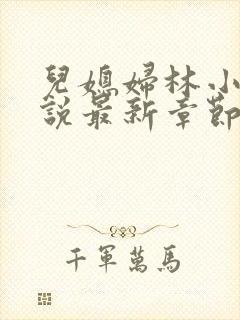 兒媳婦林小
說最新章節
千軍萬馬